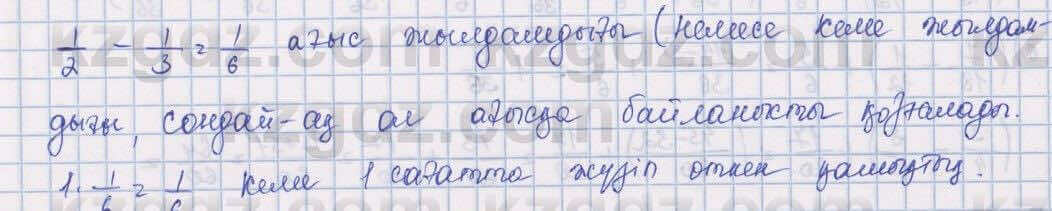 1/2 - 1/3 = 1/6 ағыс жылдамдығы (немесе кеме жылдам-
дығы, сондай-ақ ол ағысқа байланысты қозғалады.
1 · 1/6 = 1/6 кеме 1 сағатта жүзіп өткен қашықтық.